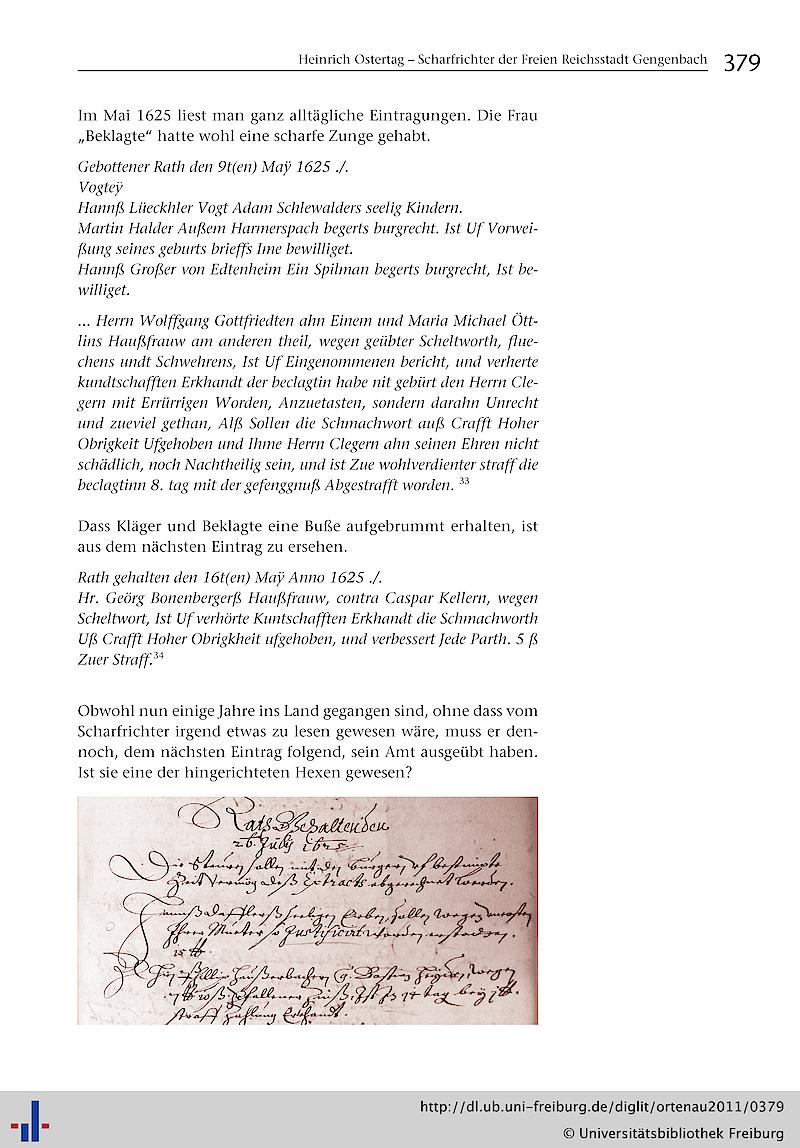 Heinrich Ostertag – Scharfrichter der Freien Reichsstadt Gengenbach 379
Im Mai 1625 liest man ganz alltägliche Eintragungen. Die Frau
„Beklagte“ hatte wohl eine scharfe Zunge gehabt.
Gebottener Rath den 9t(en) Maÿ 1625 ./.
Vogteÿ
Hannß Lüeckhler Vogt Adam Schlewalders seelig Kindern.
Martin Halder Außem Harmerspach begerts burgrecht. Ist Uf Vorwei-
ßung seines geburts brieffs Ime bewilliget.
Hannß Großer von Edtenheim Ein Spilman begerts burgrecht, Ist be-
williget.
... Herrn Wolffgang Gottfriedten ahn Einem und Maria Michael Ött-
lins Haußfrauw am anderen theil, wegen geübter Scheltworth, flue-
chens undt Schwehrens, Ist Uf Eingenommenen bericht, und verherte
kundtschafften Erkhandt der beclagtin habe nit gebürt den Herrn Cle-
gern mit Errürrigen Worden, Anzuetasten, sondern darahn Unrecht
und zueviel gethan, Alß Sollen die Schmachwort auß Crafft Hoher
Obrigkeit Ufgehoben und Ihme Herrn Clegern ahn seinen Ehren nicht
schädlich, noch Nachtheilig sein, und ist Zue wohlverdienter straff die
beclagtinn 8. tag mit der gefenggnuß Abgestrafft worden. 33
Dass Kläger und Beklagte eine Buße aufgebrummt erhalten, ist
aus dem nächsten Eintrag zu ersehen.
Rath gehalten den 16t(en) Maÿ Anno 1625 ./.
Hr. Geörg Bonenbergerß Haußfrauw, contra Caspar Kellern, wegen
Scheltwort, Ist Uf verhörte Kuntschafften Erkhandt die Schmachworth
Uß Crafft Hoher Obrigkheit ufgehoben, und verbessert Jede Parth. 5 ß
Zuer Straff.34
Obwohl nun einige Jahre ins Land gegangen sind, ohne dass vom
Scharfrichter irgend etwas zu lesen gewesen wäre, muss er den-
noch, dem nächsten Eintrag folgend, sein Amt ausgeübt haben.
Ist sie eine der hingerichteten Hexen gewesen?
http://dl.ub.uni-freiburg.de/diglit/ortenau2011/0379
© Universitätsbibliothek Freiburg